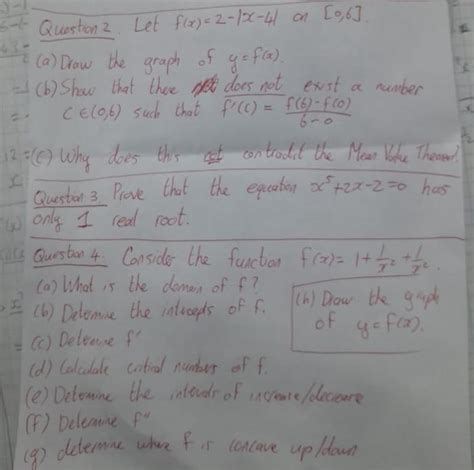 Question 2. Let f(x) = 2 - |x - 4| on [0,6].
(a) Draw the graph of y = f(x).
(b) Show that there does not exist a number
C ∈ (0,6) such that f'(c) = f(6) - f(0) / 6 - 0
(c) Why does this contradict the Mean Value Theorem?
Question 3. Prove that the equation x^5 + 2x - 2 = 0 has
only 1 real root.
Question 4. Consider the function f(x) = 1 + 1/x^2 + 1/x^2.
(a) What is the domain of f?
(b) Determine the intercepts of f.
(c) Determine f'
(d) Calculate critical numbers of f.
(e) Determine the intervals of increase/decrease
(f) Determine f''
(g) determine where f is concave up/down
(h) Draw the graph
of y = f(x).